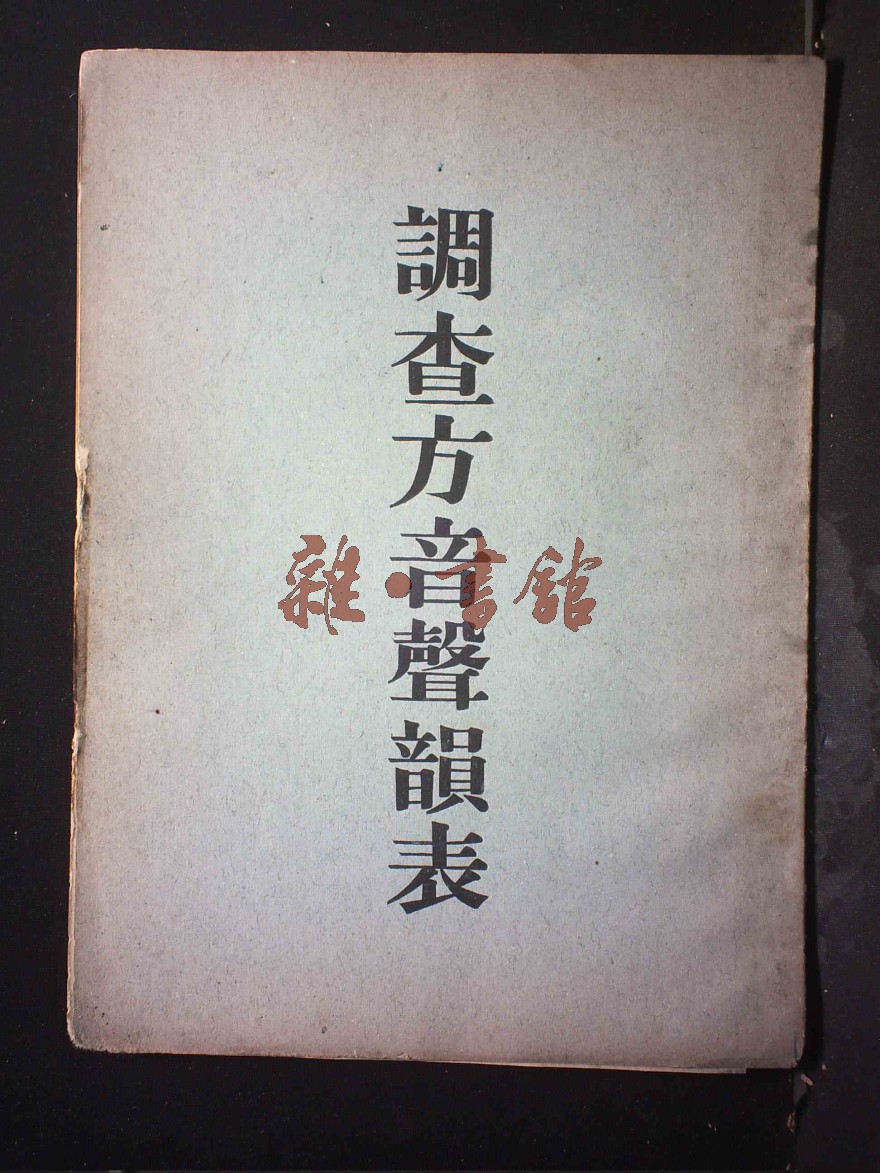 調查方音聲韻表
雜·書館